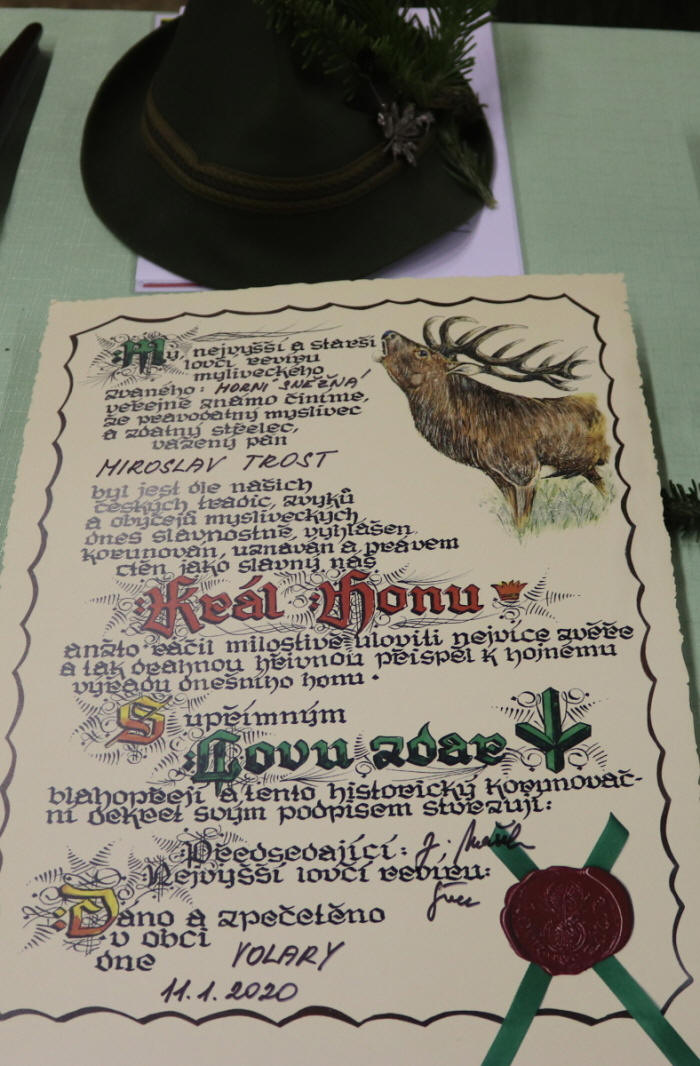 My, nejvyšší a starší
lovčí revíru
mysliveckého
zvaného: HORNÍ SNĚŽNÁ
veřejně známo činíme,
že pravodatný myslivec
a zdatný střelec,
vážený pan
MIROSLAV TROST
byl jest dle našich
českých tradic, zvyků
a obyčejů mysliveckých,
dnes slavnostně vyhlášen,
korunován, uznáván a právem
ctěn jako slavný náš
Král Honu
anžto ráčil milostivě uloviti nejvíce zvěře
a tak drahnou hřivnou přispěl k hojnému
výřadu dnešního honu.
S upřímným
Lovu zdar
blahopřejí a tento historický korunovač-
ní dekret svým podpisem stvrzují:
Předsedající:
Nejvyšší lovčí revíru:
Dáno a zpečetěno
v obci
dne VOLARY
11.1.2020